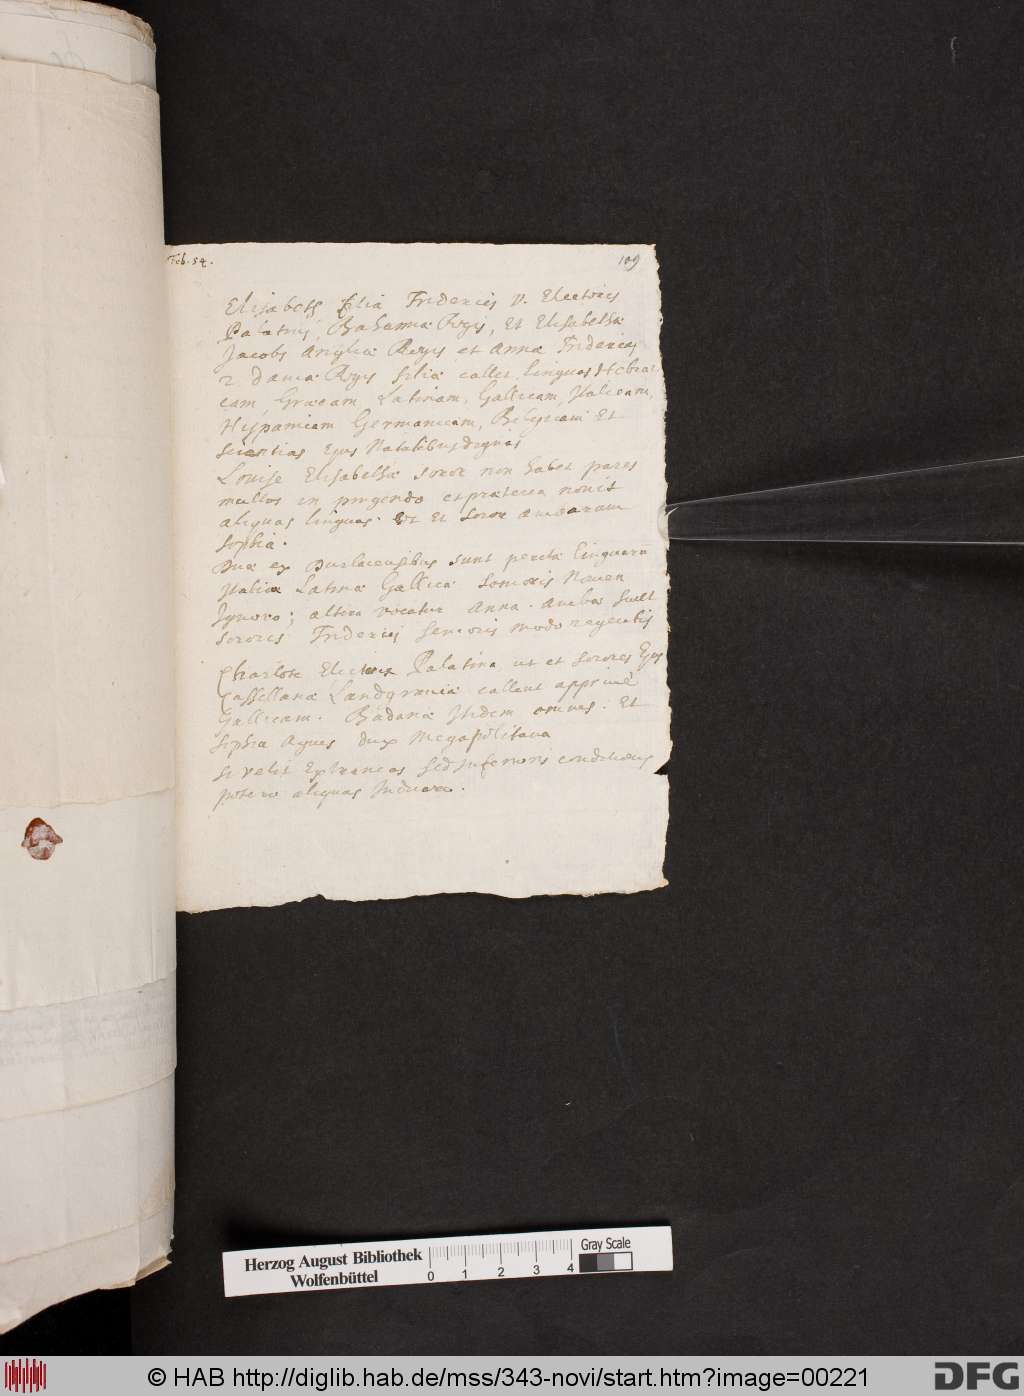 Feb. 54.
109
Elisabeth filia Friderici V. Electoris
Palatini, Bohemiæ Regis, et Elisabethæ
Jacobi Angliæ Regis et Annæ Friderici
2. Daniæ Regis filiæ callet linguas Hebrai-
cam, Græcam, Latinam, Gallicam, Italicam,
Hispanicam Germanicam, Belgicam Et
scientias Ejus Natalibus dignas
Louise Elisabethæ soror non habet pares
multos in pingendo et præterea novit
aliquas linguas. Et soror ambarum
Sophia.
Duæ ex Durlacensibus sunt peritæ linguarum
Italicæ Latinæ Gallicæ Senioris Nomen
Ignoro; altera vocatur Anna. Ambæ sunt
sorores Friderici senioris modo regentis
Charlote Electrix Palatina ut et sorores Ejus
Cassellanæ Landgraviæ callent apprime
Gallicam. Badanæ Itidem omnes. Et
Sophia Agnes dux Megapolitana
Si velis Extraneas sed inferioris conditionis
potero aliquas Inducere.
Herzog August Bibliothek
Wolfenbüttel
0 1 2 3 4
Gray Scale
© HAB http://diglib.hab.de/mss/343-novi/start.htm?image=00221
DFG